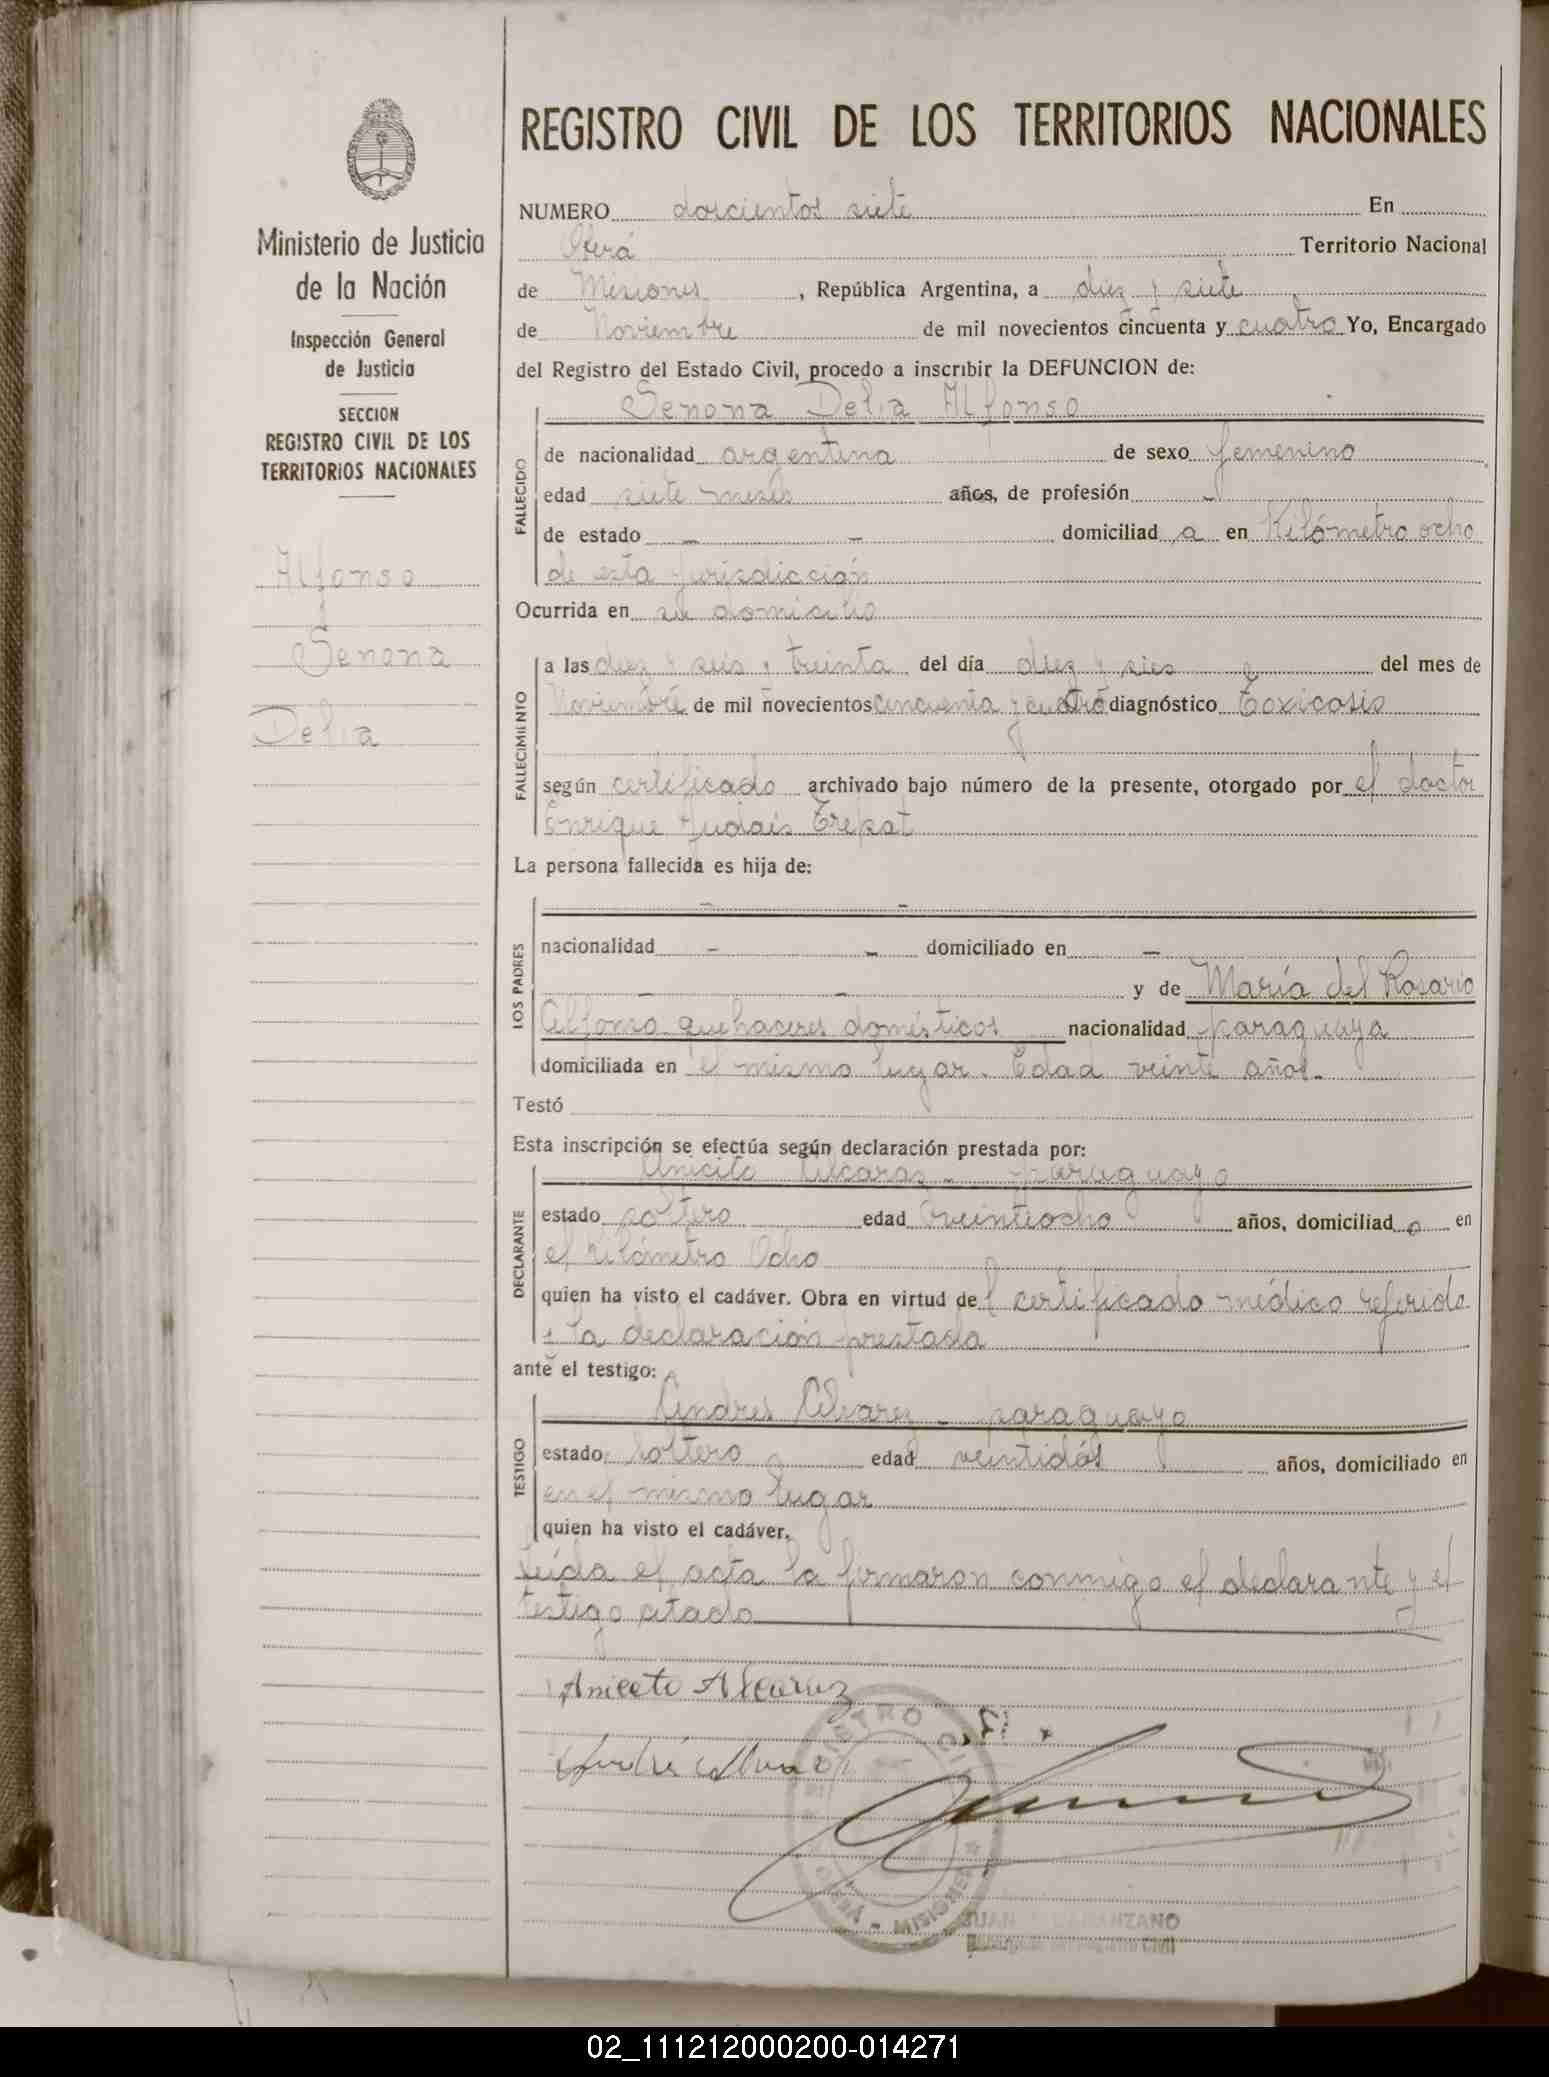 REGISTRO CIVIL DE LOS TERRITORIOS NACIONALES
Ministerio de Justicia
de la Nación
Inspección General
de Justicia
SECCION
REGISTRO CIVIL DE LOS
TERRITORIOS NACIONALES
Alfonso
Senona
Delia
NUMERO doscientos siete En
Oberá Territorio Nacional
de Misiones, República Argentina, a diez y siete
de Noviembre de mil novecientos cincuenta y cuatro Yo, Encargado
del Registro del Estado Civil, procedo a inscribir la DEFUNCION de:
Senona Delia Alfonso
FALLECIDO
de nacionalidad argentina de sexo femenino
edad siete meses años, de profesión -
de estado - - domiciliad a en Kilómetro ocho
de esta jurisdicción
Ocurrida en su domicilio
FALLECIMIENTO
a las diez y seis y treinta del día diez y seis del mes de
Noviembre de mil novecientos cincuenta y cuatro diagnóstico Toxicosis
según certificado archivado bajo número de la presente, otorgado por el doctor
Enrique Trepat
La persona fallecida es hija de:
LOS PADRES
- -
nacionalidad - - domiciliado en -
- - y de María del Rosario
Alfonso quehaceres domésticos nacionalidad paraguaya
domiciliada en el mismo lugar. Edad veinte años.-
Testó
Esta inscripción se efectúa según declaración prestada por:
DECLARANTE
Aniceto Alcaraz - paraguayo
estado soltero edad veintiocho años, domiciliad o en
el kilómetro Ocho
quien ha visto el cadáver. Obra en virtud del certificado médico referido
y la declaración prestada
ante el testigo:
TESTIGO
Andres Alvarez - paraguayo
estado soltero edad veintidós años, domiciliado en
en el mismo lugar
quien ha visto el cadáver.
Leída el acta la firmaron conmigo el declarante y el
testigo citado
Aniceto Alcaraz
REGISTRO CIVIL
OBERÁ - MISIONES
02_111212000200-014271